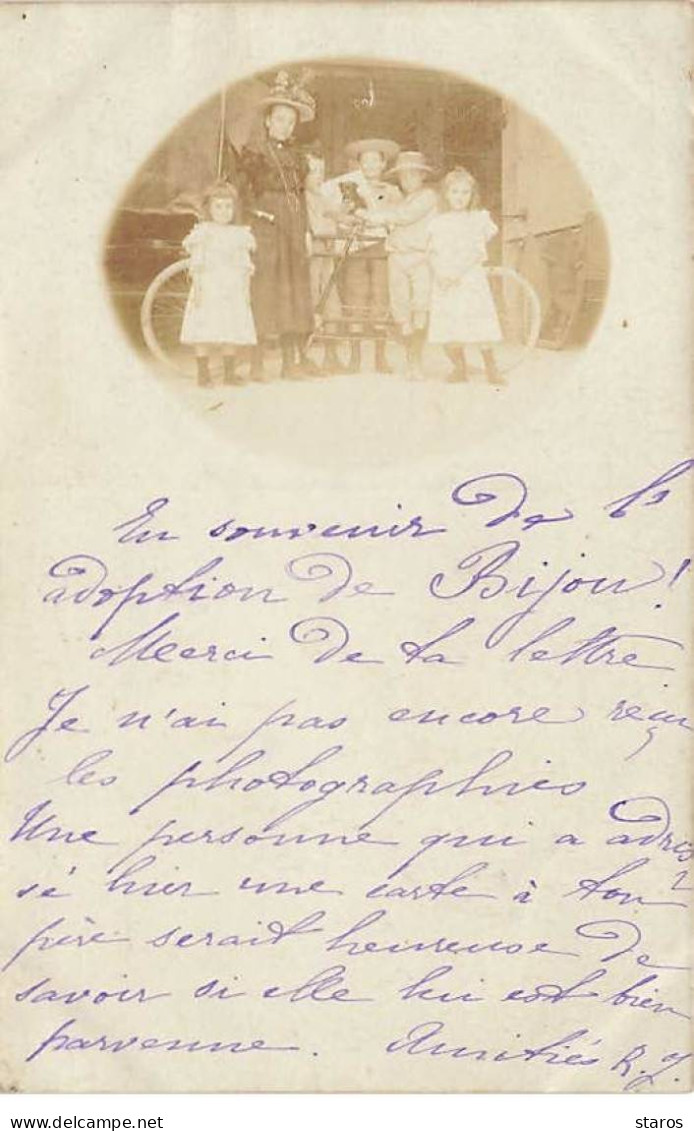 En souvenir de l'
adoption de Bijou!
Merci de ta lettre
Je n'ai pas encore reçu
les photographies
Une personne qui a adres
sé hier une carte à ton
père serait heureuse de
savoir si elle lui est bien
parvenue. Amitiés R. J.
staros
Delcampe.net